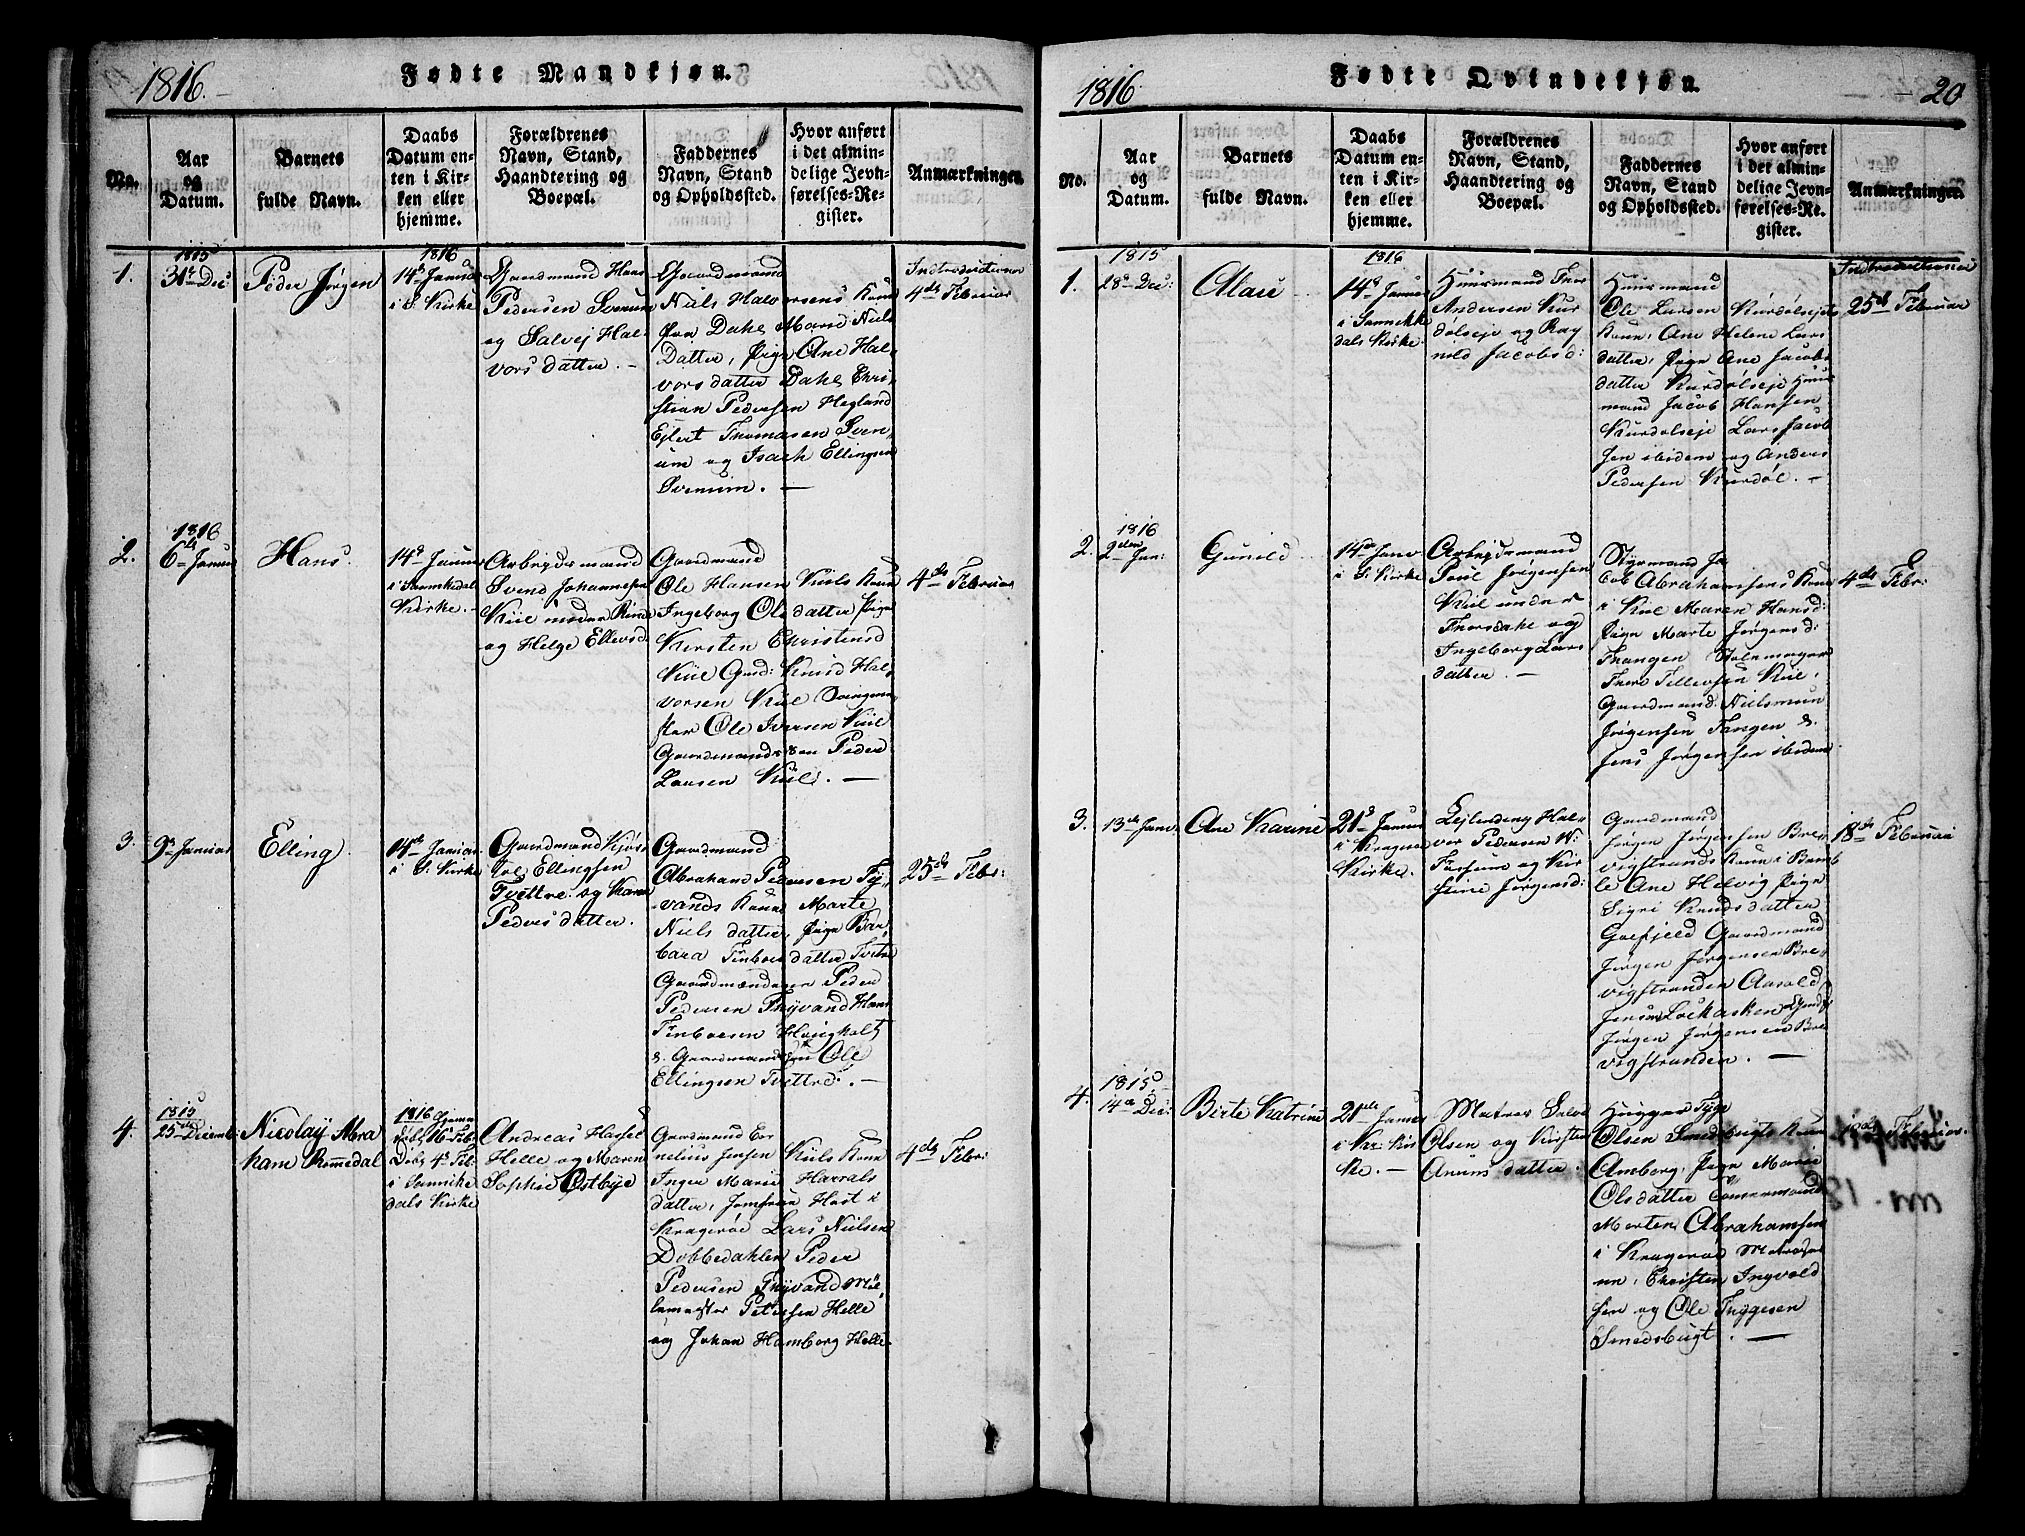 1816.
Fødte Mandkjøn.
No.
Aar
og
Datum.
Barnets
fulde Navn.
Daabs
Datum en-
ten i Kir-
ken eller
hjemme.
Forældrenes
Navn, Stand,
Haandtering og
Boepæl.
Faddernes
Navn, Stand
og Opholdssted.
Hvor anført
i det almin-
delige Jevn-
førelses-Re-
gister.
Anmærkninger.
1.
1815
31te Dec:
Peder Jørgen
1816
14d Januar
i S. Kirke
Gaardmand Hans
Pedersen Svenum
og Salvej Hal-
vorsdatter. -
Gaardmand
Niels Halvorsens Kone
fra Dahl Maria Niels
Datter, Pige Ane Hal-
vorsdatter Dahl, Chri-
stian Pedersen Hegland
Ejlert Thomasen Sven-
um og Isach Ellingsen
Svenum. -
Introductioner
4de Februar
2.
1816
6te Januar
Hans.
14d Januar
i Sannikedal
Kirke. -
Arbejdsmand
Svend Johannesen
Kiil
og Helge Ellevsd
Gaardmand
Ole Hansen Kiils Kone
Ingeborg Olsdatter Pige
Kirsten Christensd
Kiil Gmd: Knud Hal-
vorsen Kiil
Ole Iversen Kiil
Gaardmandssøn Peder
Larsen Kiil. -
4de Februar
3.
9de Januar
Elling.
14de Januar
i S: Kirke
Gaardmand Kjøs-
tol Ellingsen
Tvettre og Karen
Pedersdatter.
Gaardmand
Abraham Pedersen Tÿ-
vands Kone Marte
Nielsdatter, Pige Bar-
bara Finboesdatter Tvetre
Gaardmændene Peder
Pedersen Thÿvand Hans
Finboesen Hougholt
& Gaardmandssøn Ole
Ellingsen Tvettre. -
25de Febr:
4.
1815
25de Decemb:
Nicolaÿ Abra
ham Romedal
1816 hjemme
døbt 16 Feb
Døbt 4de Feb
i Sannike
dals Kirke
Andreas Hassel
Helle og Maren
Sophie Østbye
Gaardmand Cor
nelius Jensen Kiils Kone
Inger Marie Harrals
datter, Jomfrue Host i
Kragerøe Lars Nielsen
Dobbedahlen Peder
Pedersen Thÿvand
Petersen Helle
og Johan Hamborg Helle
4de Febr:
1816
Fødte Qvindekjøn.
20
No.
Aar
og
Datum.
Barnets
fulde Navn.
Daabs
Datum en-
ten i Kir-
ken eller
hjemme.
Forældrenes
Navn, Stand,
Haandtering og
Boepæl.
Faddernes
Navn, Stand
og Opholdssted.
Hvor anført
i det almin-
delige Jevn-
førelses-Re-
gister.
Anmærkninger.
1.
1815
28d Dec:
1816
14d Januar
i Sannike
dals Kirke.
Huusmand Thor
Andersen Kur
dølseje og Rag
nild Jacobsd:
Huusmand
Ole Larsen Kurdølsejets
Kone, Ane Helene Lars
datter, Pigen Ane Jacobs
datter Kurdølseje Huus
mand Jacob Hansen
Kurdølseje Lars Jacob
sen ibidem og Anders
Pedersen Kurdøl. -
Introductioner
25de Februar
2.
1816
2den Jan:
Gunild
14de Janv
i S: Kirke
Arbejdsmand
Poul Jørgensen
Kiil under
Thorsdahl og
Ingeborg Lars
datter. -
Styrmand Ja
cob Abrahamsens Kone
i Kiil Maren Hansd:
Pige Marte Jørgensd:
Thangen
Thore Tellevsen Kiil,
Gaardmand:
Jørgensen Tangen &
Jens Jørgensen ibidem
4de Febr:
3.
13de Janv:
Ane Karine
21d Januar
i Kragerøe
Kirke.
Lejlending Hal-
vor Pedersen W:
Farsjøe og Kir
stine Jørgensd:
Gaardmand
Jørgen Jørgensen Bre-
vigstrands Kone i Bamb
le Ane Helvig Pige
Sigri Knudsdatter
Goefjeld Gaardmand
Jørgen Jørgensen Bre-
vigstranden Aarold
Jensen
Jørgen Jørgensen Bre
vigstranden. -
18de Februar
4.
1815
14de Dec:
Birte Katrine
21de Januar
i Kr: Kir
ke. -
Matros Salve
Olsen og Kirsten
datter.
Tyge
Olsen Smedsbugts Kone
Amborg, Pige Marie
Olsdatter
Morten Abrahamsen
i Kragerøe Matroser
ne, Christen Ingvold
sen og Ole Tyggesen
Smedsbugt. -
Februar.